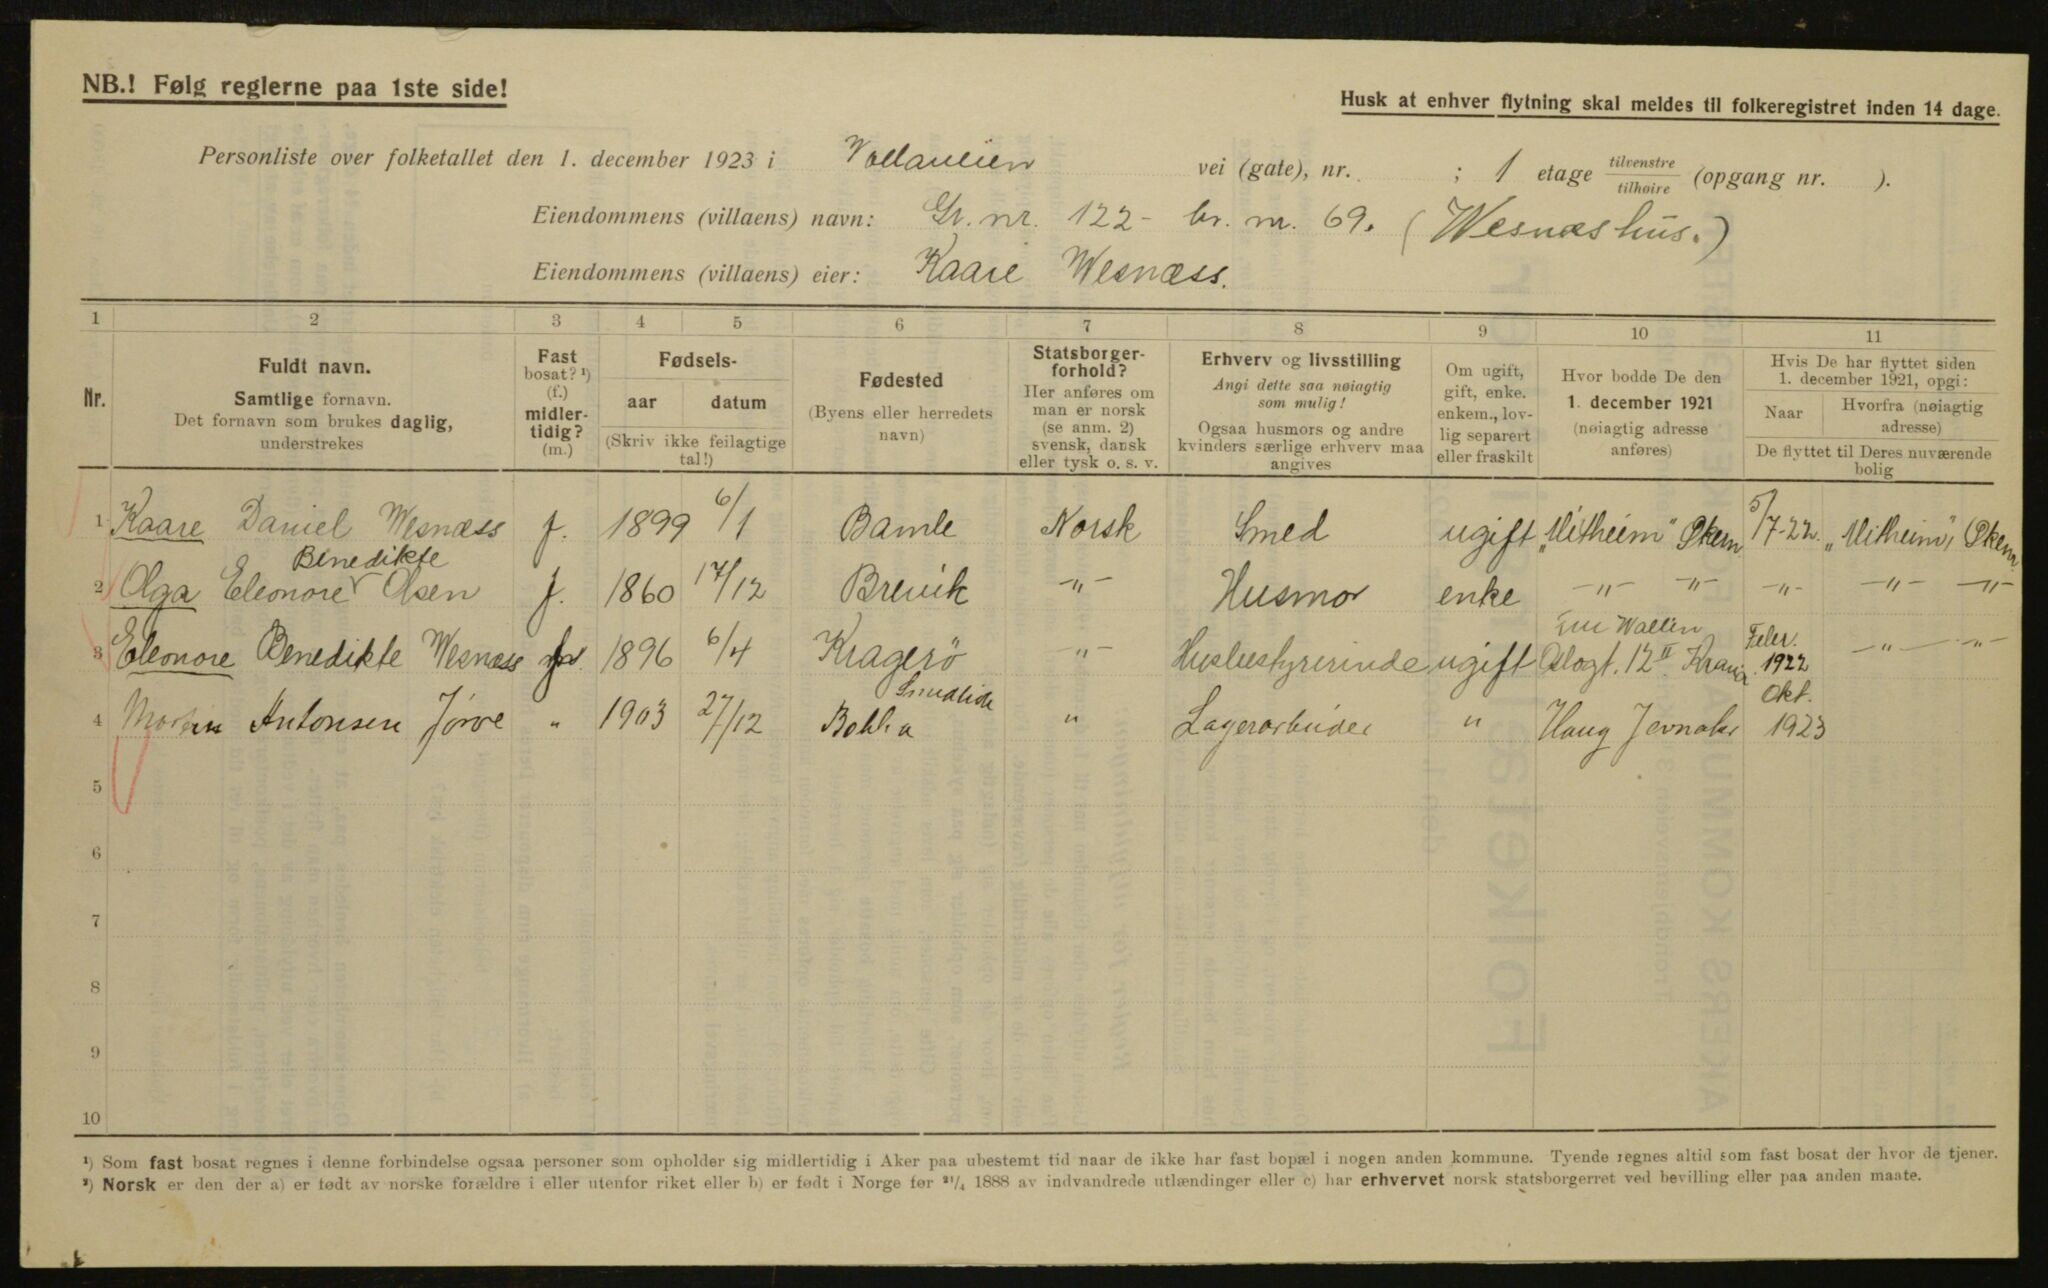 NB.! Følg reglerne paa 1ste side!
Husk at enhver flytning skal meldes til folkeregistret inden 14 dage.
Personliste over folketallet den 1. december 1923 i Vollaveien vei (gate), nr. ; 1 etage tilvenstre/tilhøire (opgang nr. ).
Eiendommens (villaens) navn: Gr. nr. 122 - br. nr. 69. (Wesnæshus.)
Eiendommens (villaens) eier: Kaare Wesnæss.
1 2 3 4 5 6 7 8 9 10 11
Nr.
Fuldt navn.
Samtlige fornavn.
Det fornavn som brukes daglig,
understrekes
Fast
bosat? ¹)
(f.)
midler-
tidig?
(m.)
Fødsels-
aar datum
(Skriv ikke feilagtige
tal!)
Fødested
(Byens eller herredets
navn)
Statsborger-
forhold?
Her anføres om
man er norsk
(se anm. 2)
svensk, dansk
eller tysk o. s. v.
Erhverv og livsstilling
Angi dette saa nøiagtig
som mulig!
Ogsaa husmors og andre
kvinders særlige erhverv maa
angives
Om ugift,
gift, enke.
enkem., lov-
lig separert
eller fraskilt
Hvor bodde De den
1. december 1921
(nøiagtig adresse
anføres)
Hvis De har flyttet siden
1. december 1921, opgi:
Naar Hvorfra (nøiagtig
adresse)
De flyttet til Deres nuværende
bolig
1 Kaare Daniel Wesnæss f. 1899 6/1 Bamle Norsk Smed ugift „Mitheim" Økern 5/7-22. „Mitheim", Økern
Benedikte
2 Olga Eleonore Olsen f. 1860 17/12 Brevik -"- Husmor enke -"- -"- -"- -"- -"-
Wallin
3 Eleonore Benedikte Wesnæss 1896 6/4 Kragerø -"- Husbestyrerinde ugift 12 II Febr. 1922 -"- -"-
4 Martin Antonsen " 1903 27/12 " Lagerarbeider " Haug Jevnaker Okt. 1923
5
6
7
8
9
10
¹) Som fast bosat regnes i denne forbindelse ogsaa personer som opholder sig midlertidig i Aker paa ubestemt tid naar de ikke har fast bopæl i nogen anden kommune. Tyende regnes altid som fast bosat der hvor de tjener.
²) Norsk er den der a) er født av norske forældre i eller utenfor riket eller b) er født i Norge før ²¹/₄ 1888 av indvandrede utlændinger eller c) har erhvervet norsk statsborgerret ved bevilling eller paa anden maate.